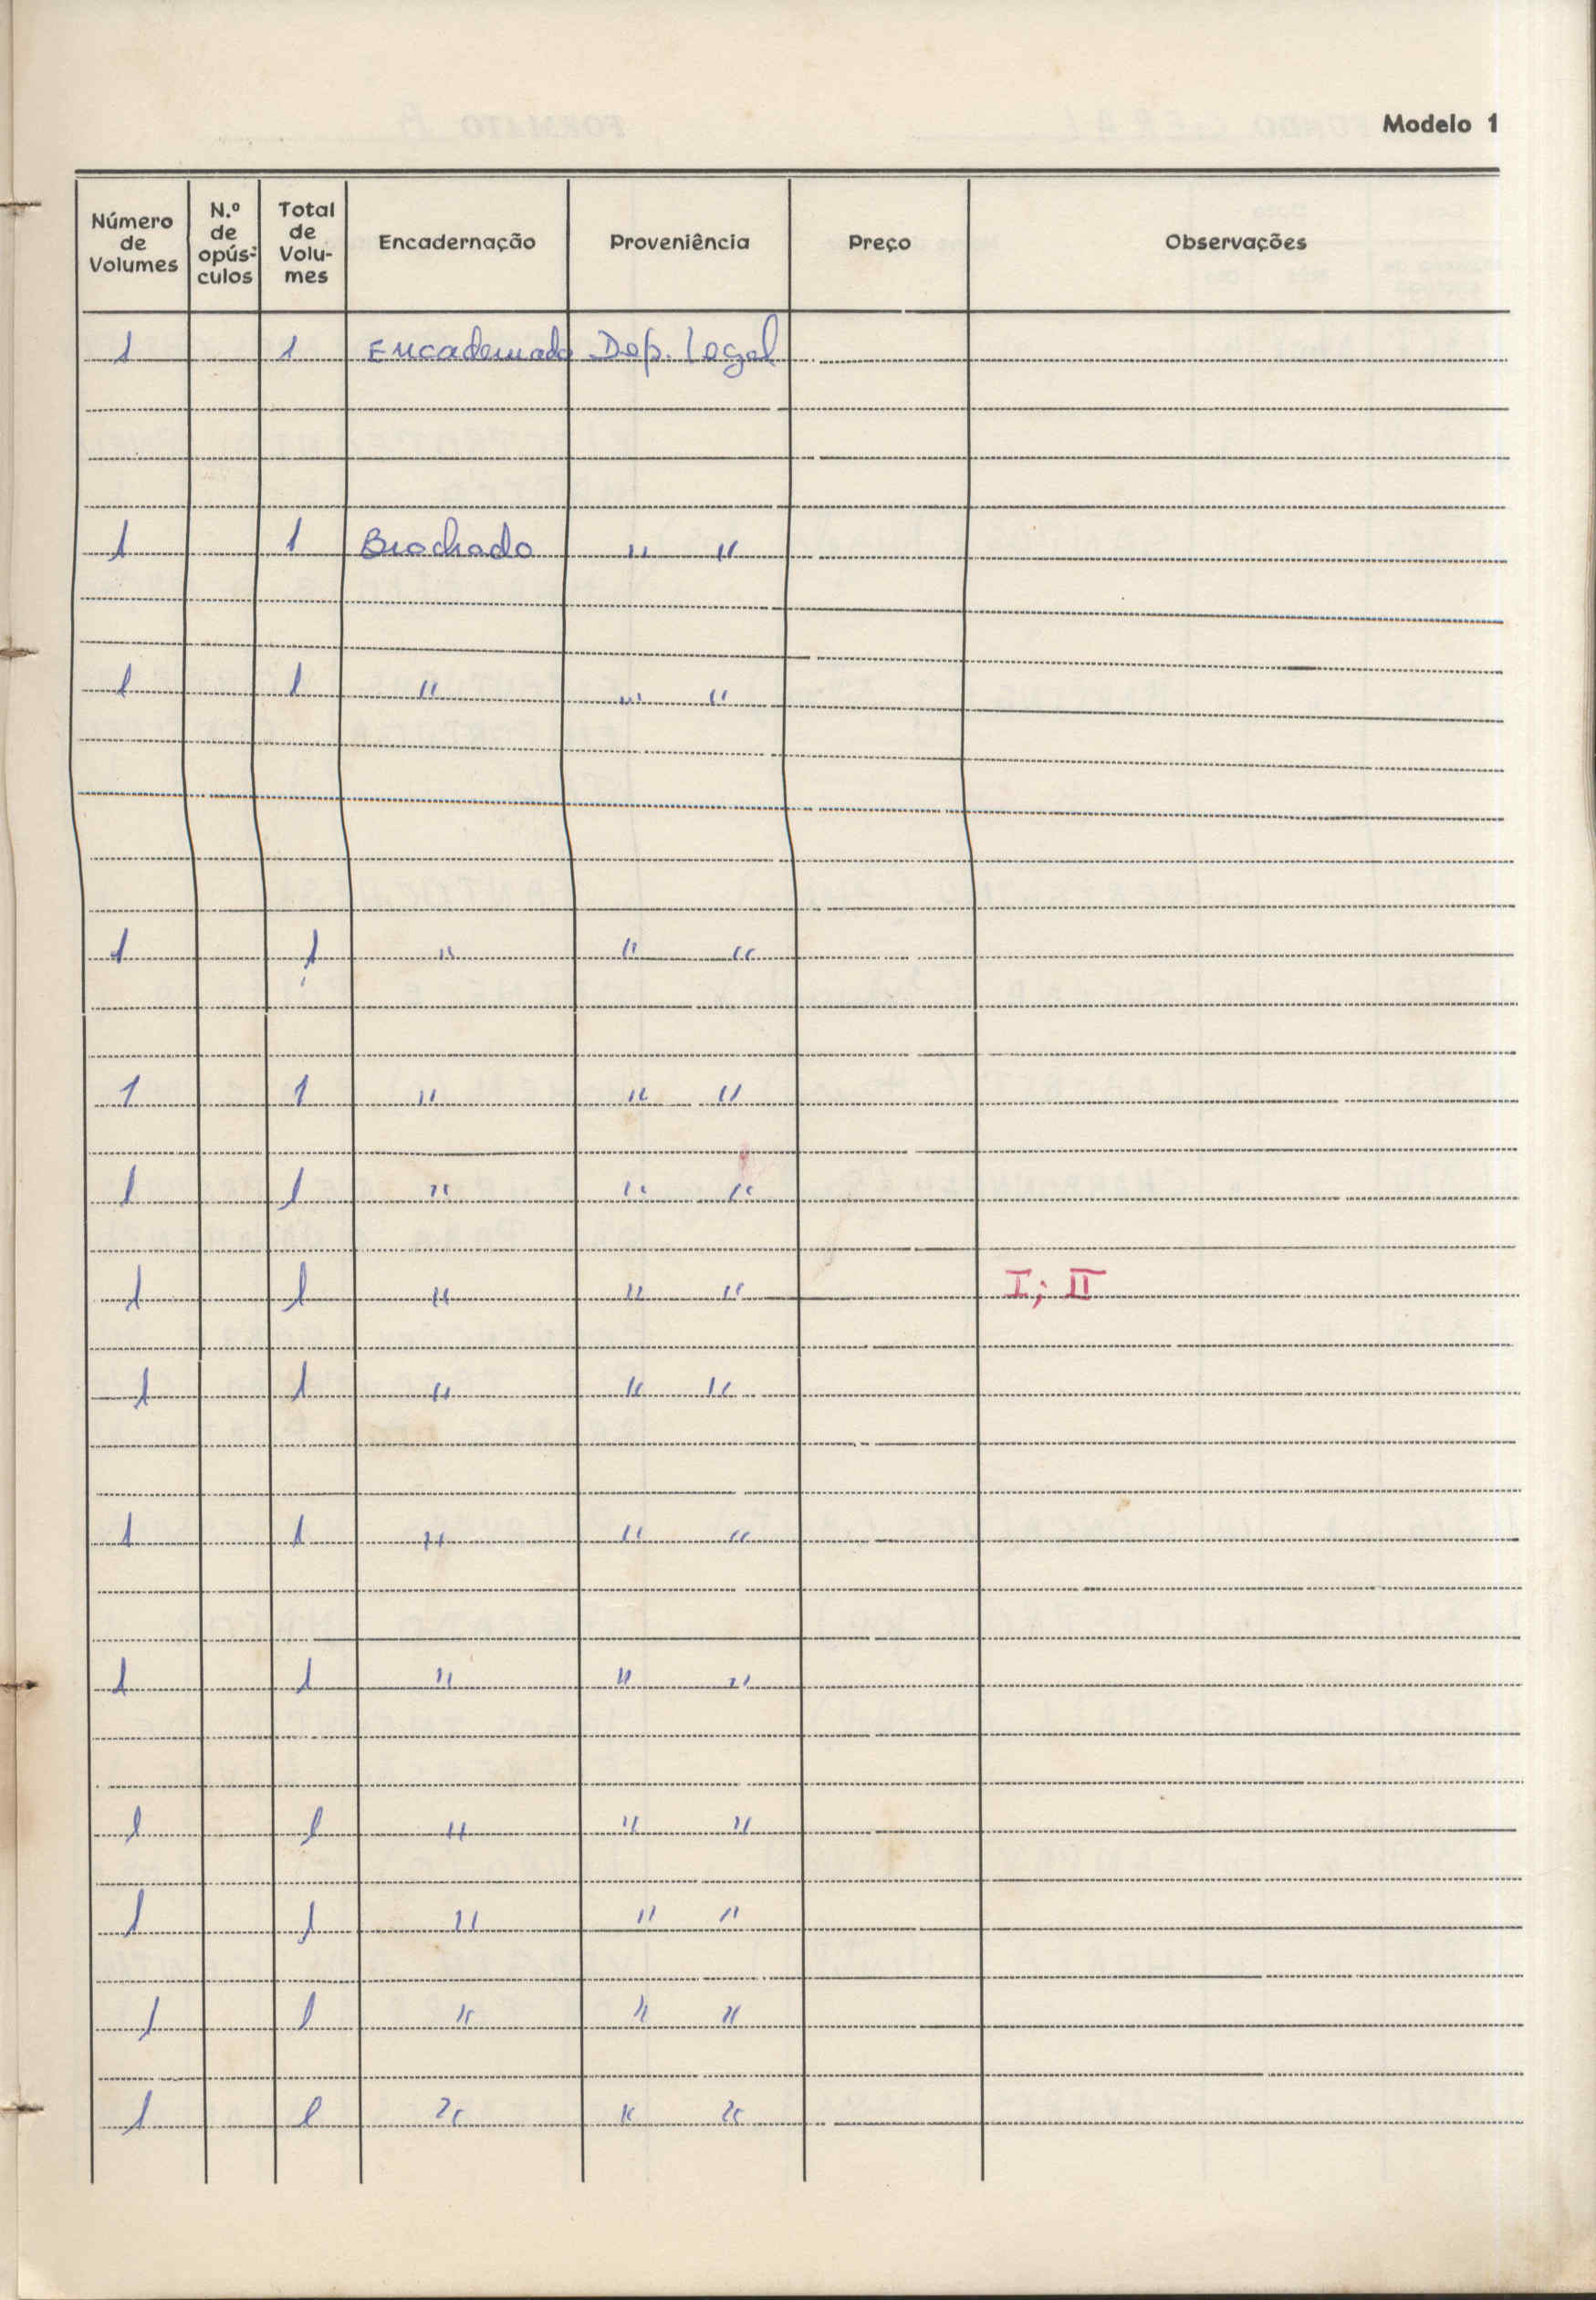 Modelo 1
Número de Volumes N.º de opús-culos Total de Volu-mes Encadernação Proveniência Preço Observações
1 1 Encadernado Dep. Legal
1 1 Brochado " "
1 1 " " "
1 1 " " "
1 1 " " "
1 1 " " "
1 1 " " " I; II
1 1 " " "
1 1 " " "
1 1 " " "
1 1 " " "
1 1 " " "
1 1 " " "
1 1 " " "